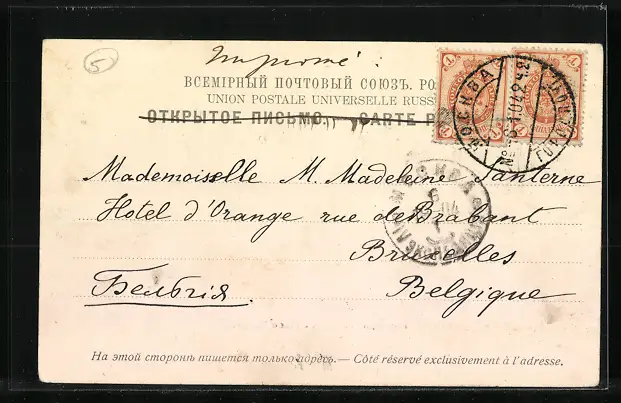 5
Imprimé:
ВСЕМІРНЫЙ ПОЧТОВЫЙ СОЮЗЪ. РО
UNION POSTALE UNIVERSELLE RUSS
ОТКРЫТОЕ ПИСЬМО. — CARTE P
МОСКВА
1
1
Mademoiselle M. Madeleine Santerne
Hotel d'Orange rue de Brabant
Bruxelles
Бельгія. Belgique
На этой сторонѣ пишется только адресъ. — Côté réservé exclusivement à l'adresse.